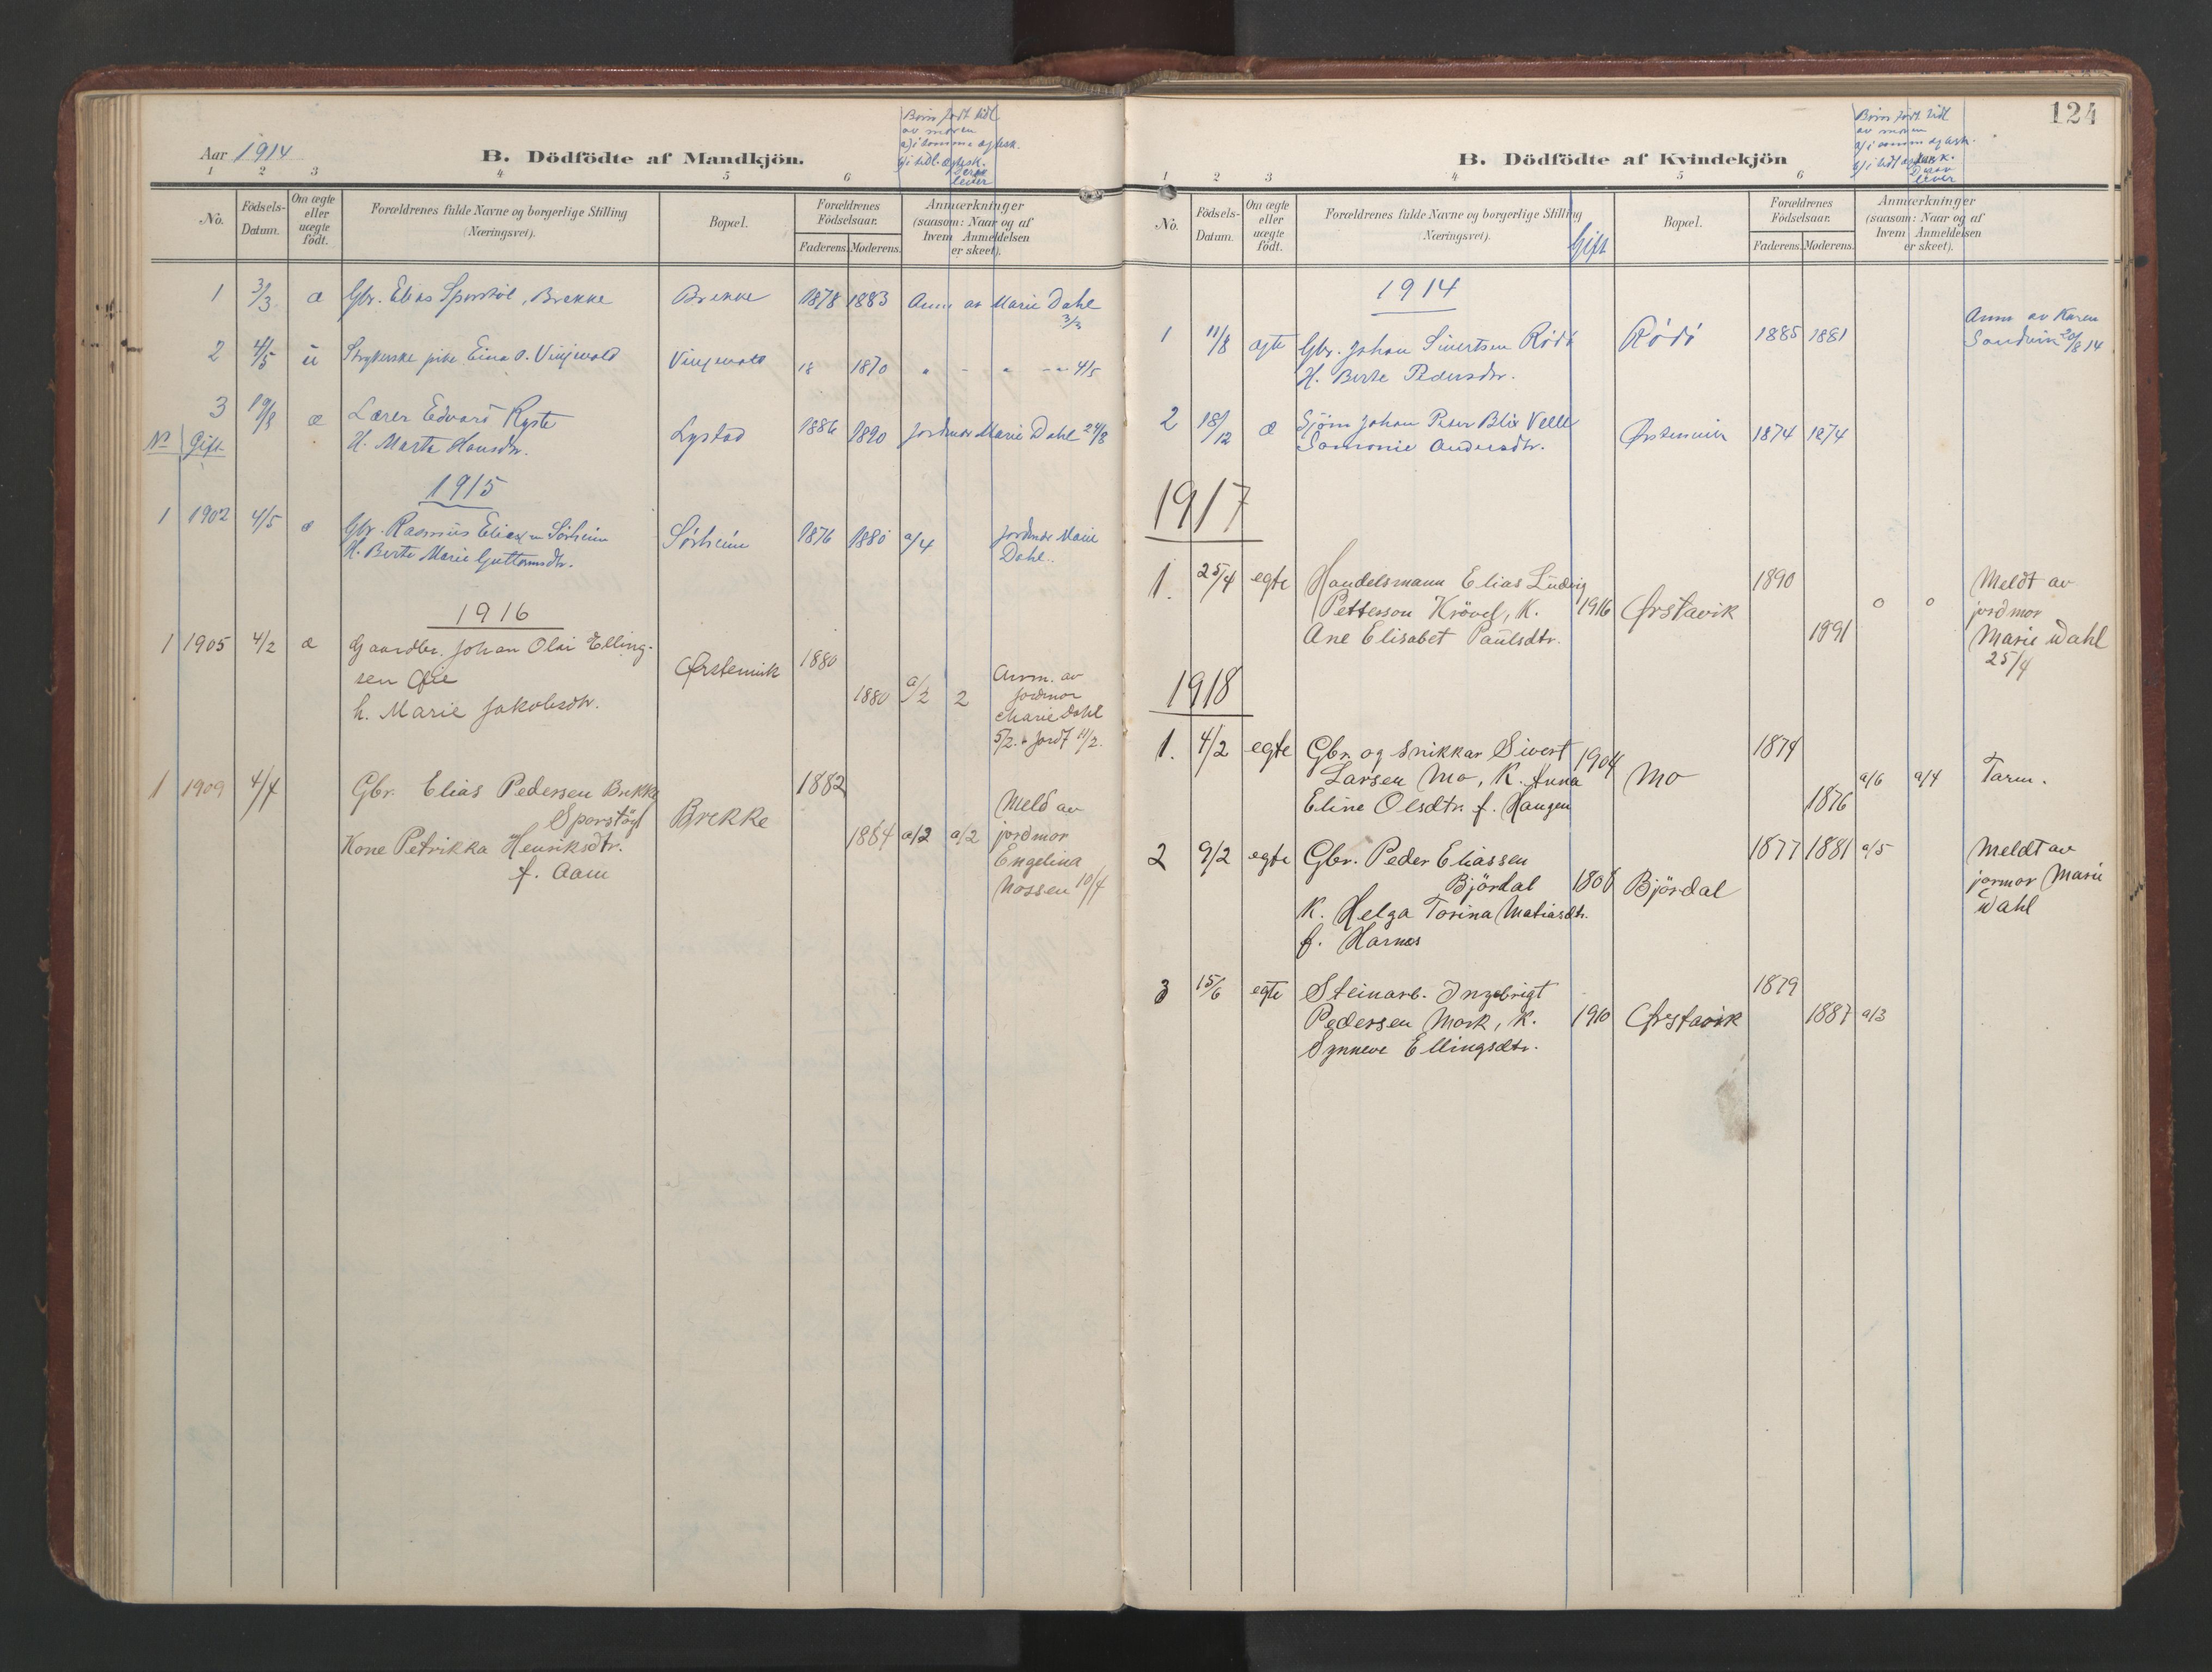 Aar 1914
B. Dödfödte af Mandkjön.
Børn født tidl
av moren
a) i samme egtesk.
b) i tidl. egtesk.
Derav
lever
1 2 3 4 5 6
No.
Födsels-
Datum.
Om ægte
eller
uægte
födt.
Forældrenes fulde Navne og borgerlige Stilling
(Næringsvei).
Bopæl.
Forældrenes
Födselsaar.
Faderens. Moderens.
Anmærkninger
(saasom: Naar og af
hvem Anmeldelsen
er skeet).
1 3/3 æ Gbr. Elias Sporstøl, Brekke Brekke 1878 1883 Anm av Marie Dahl
3/3
2 4/5 u pike Eina O. Vinjevold Vinjevold 18 1870 " - " - " 4/5
3 19/8 æ Lærer Edvard Ryste
H. Marta Hansdtr. Lystad 1886 1890 Jordmor Marie Dahl 24/8
No Gift
1915
1 1902 4/5 æ Gbr. Rasmus Eliassen Sørheim
H. Berte Marie Guttormsdtr. Sørheim 1876 1880 a/4 Jordmor Marie
Dahl..
1916
1 1905 4/2 æ Gaardbr. Johan Olai Elling-
sen Øie
h. Marie Jakobsdtr. Ørstenvik 1880
1880 a/2 2 Anm. av
jordmor
Marie Dahl
5/2. Jordf 11/2.
1 1909 4/4 Gbr. Elias Pedersen Brekke
Sporstöyl
Kone Petrikka Henriksdtr.
f. Aam Brekke 1882
1884 a/2 a/2 Meld av
jordmor
Engelina
Mossen 10/4
124
B. Dödfödte af Kvindekjön
Børn født tidl
av moren
a) i samme egtesk.
b) i tidl egtesk.
Derav
lever
1 2 3 4 5 6
No.
Födsels-
Datum.
Om ægte
eller
uægte
födt.
Forældrenes fulde Navne og borgerlige Stilling
(Næringsvei).
Gift
Bopæl.
Forældrenes
Födselsaar.
Faderens. Moderens.
Anmærkninger
(saasom: Naar og af
hvem Anmeldelsen
er skeet).
1914
1 11/8 egte Gbr. Johan Sivertsen Rödö
H. Berte Pedersdtr. Rödö 1885 1881 Anm av Karen
Sandvik 20/8 14
2 18/12 æ Sjöm Johan Peter Blix Velle
Andersdtr. Ørstenvik 1874 1874
1917
1. 25/4 egte Handelsmann Elias Ludvig
Petterson Krövel, K. 1916
Ane Elisabet Paulsdtr. Ørstavik 1890
1891 0 0 Meldt av
jordmor
Marie Dahl
25/4
1918
1. 4/2 egte Gbr. og snikkar Sivert
Larsen Mo, K. Anna 1904
Eline Olsdtr. f. Haugen Mo 1874
1876 a/6 a/4 Tarm.
2 9/2 egte Gbr. Peder Eliassen
Björdal 1808
K. Helga Torina Matiasdtr.
f. Harnes Björdal 1877 1881 a/5 Meldt av
jormor Marie
Dahl
3 15/6 egte Steinarb. Ingebrigt
Pedersen Mork, K. 1910
Synneve Ellingsdtr. Ørstavik 1879
1887 a/3